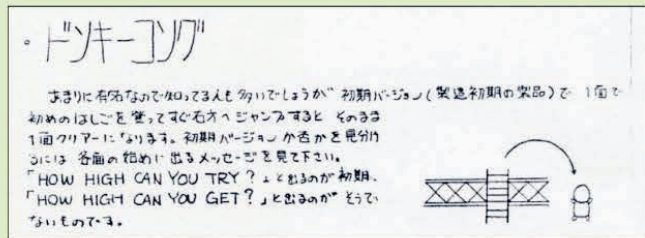 ・ドンキーコング
あまりに有名なので知ってる人も多いでしょうが 初期バージョン(製造初期の製品)で 1面で
初めのはしごを登ってすぐ右方へジャンプすると そのまま
1面クリアーになります。初期バージョンか否かを見分け
るには 各面の始めに出るメッセージを見て下さい。
「HOW HIGH CAN YOU TRY?」と出るのが初期、
「HOW HIGH CAN YOU GET?」と出るのが そうで
ないものです。